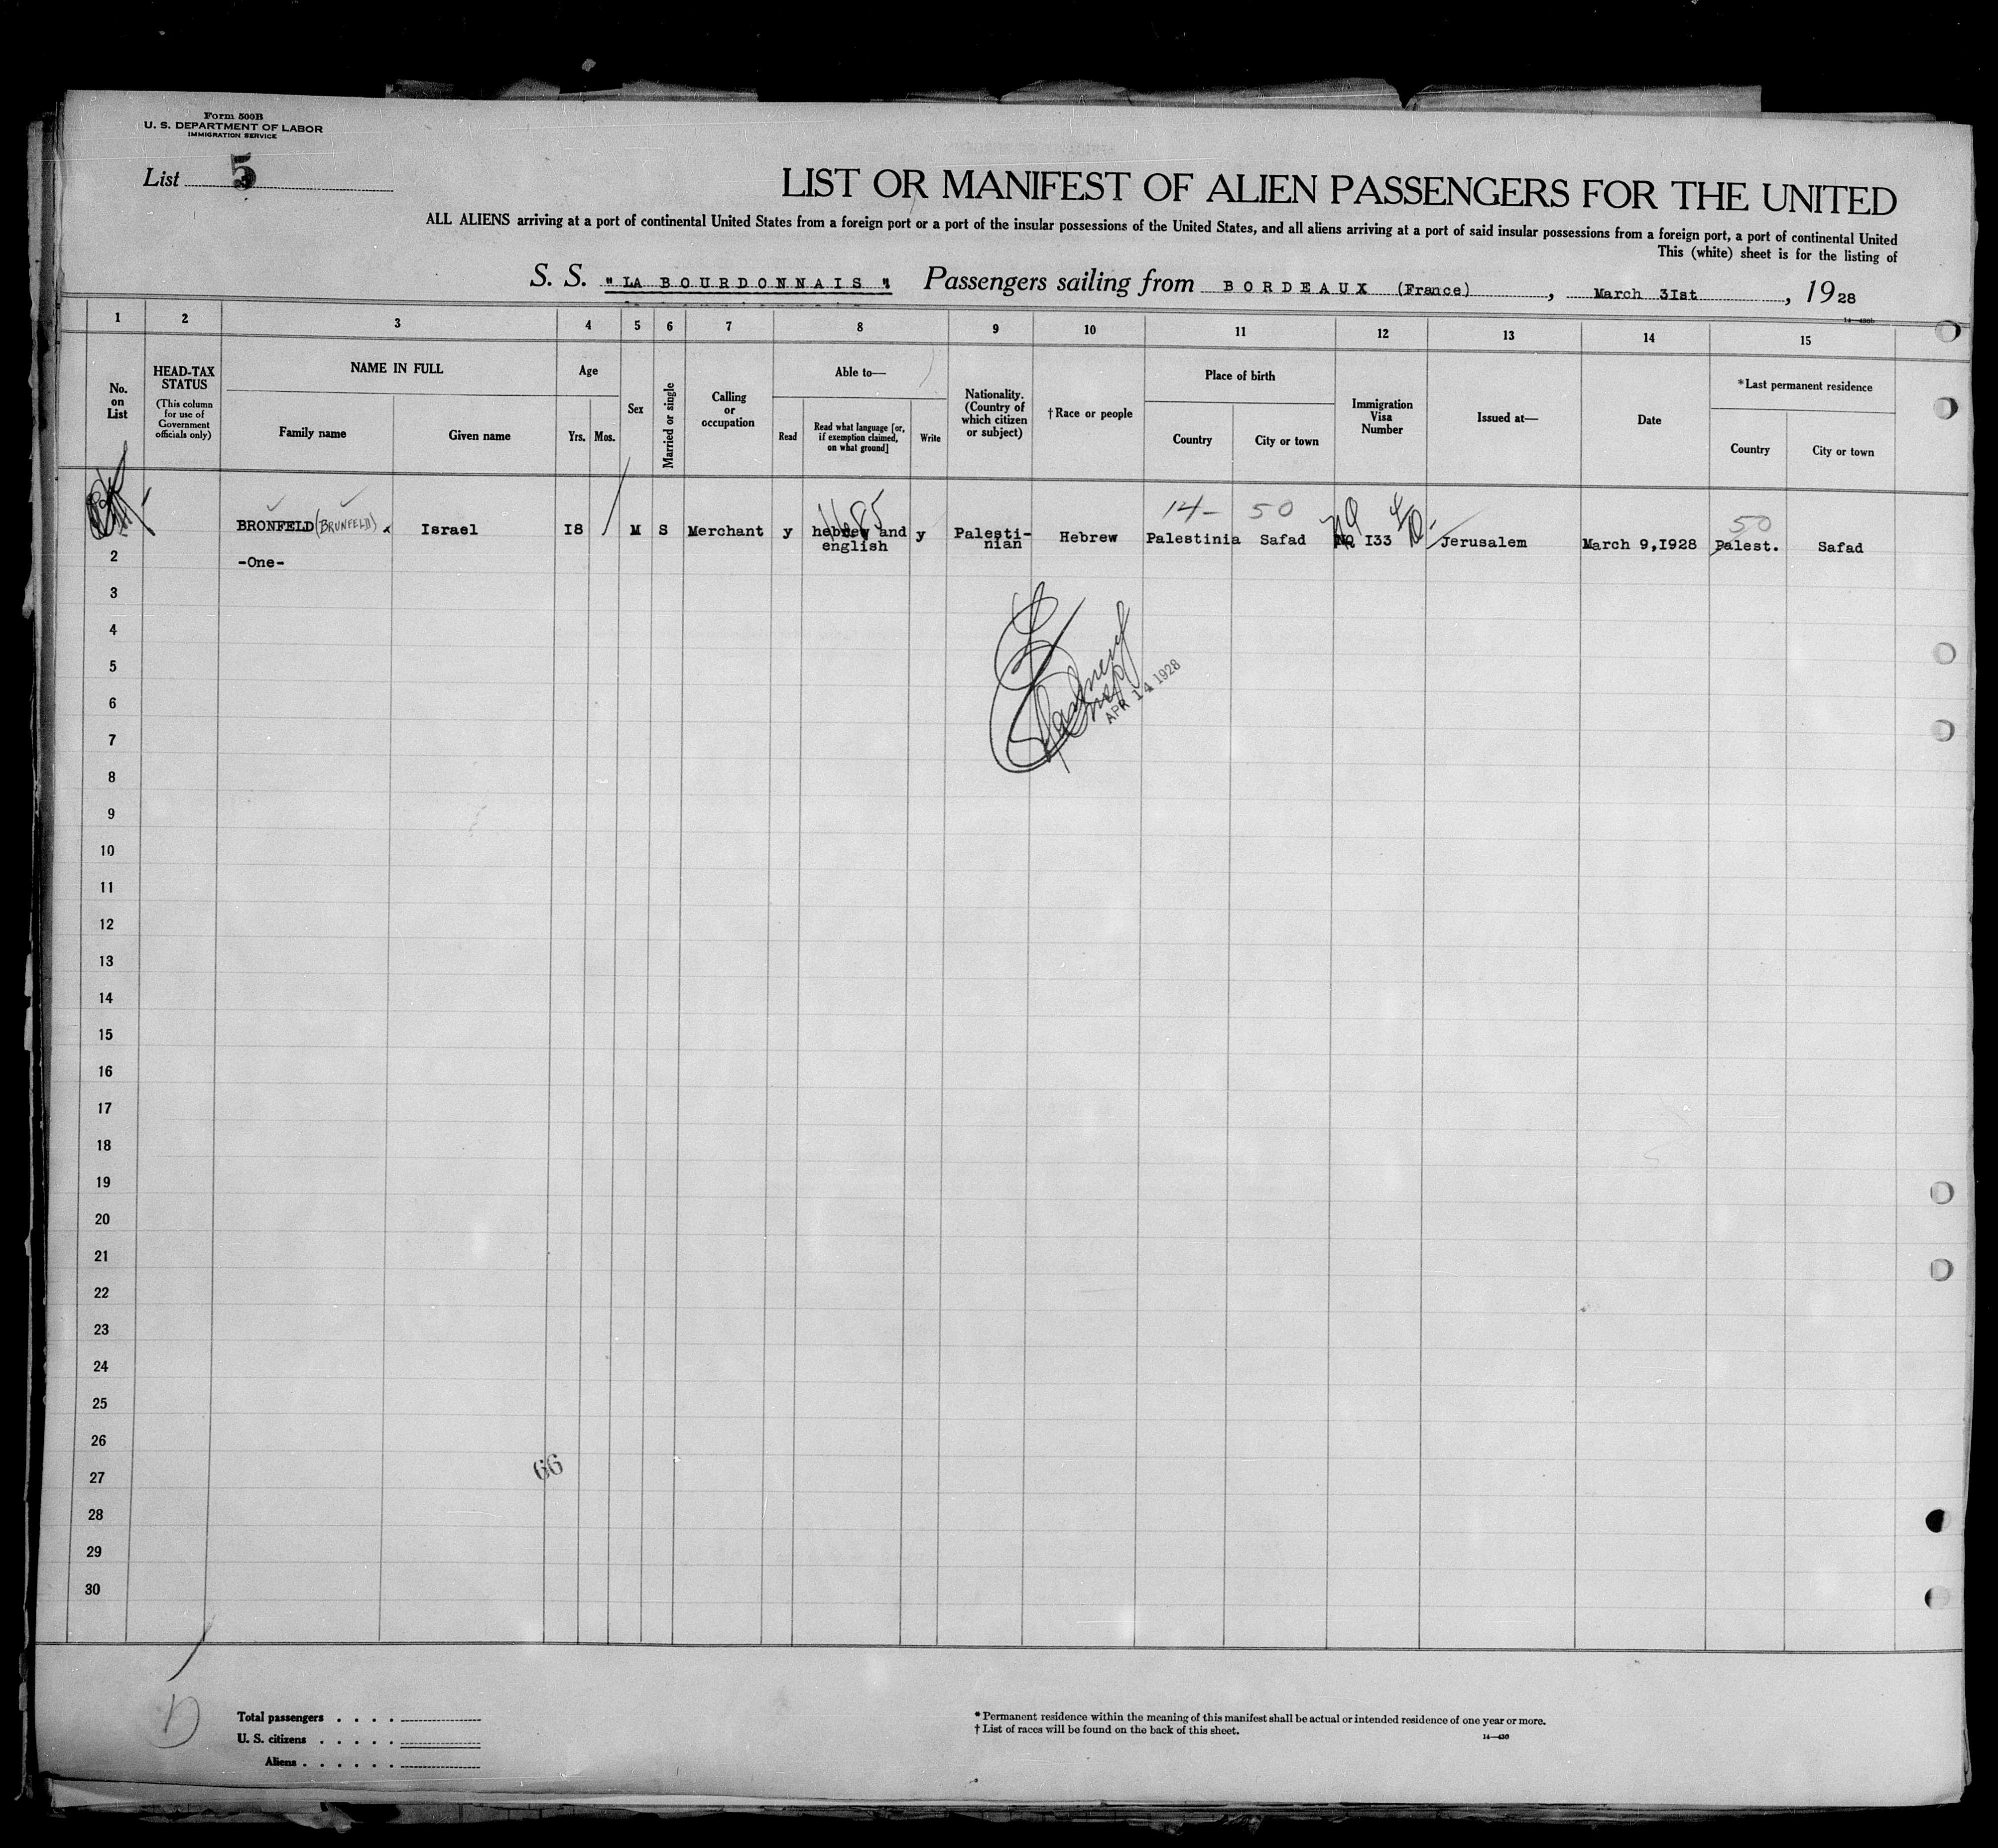 Form 500B
U. S. DEPARTMENT OF LABOR
IMMIGRATION SERVICE
List 5
LIST OR MANIFEST OF ALIEN PASSENGERS FOR THE UNITED
ALL ALIENS arriving at a port of continental United States from a foreign port or a port of the insular possessions of the United States, and all aliens arriving at a port of said insular possessions from a foreign port, a port of continental United
This (white) sheet is for the listing of
S. S. "LA BOURDONNAIS" Passengers sailing from BORDEAUX (France), March 3Ist, 1928
1 2 3 4 5 6 7 8 9 10 11 12 13 14 15
No. on List
HEAD-TAX STATUS
(This column for use of Government officials only)
NAME IN FULL
Family name
Given name
Age
Yrs. Mos.
Sex
Married or single
Calling or occupation
Able to—
Read
Read what language [or, if exemption claimed, on what ground]
Write
Nationality. (Country of which citizen or subject)
†Race or people
Place of birth
Country
City or town
Immigration Visa Number
Issued at—
Date
*Last permanent residence
Country
City or town
14- 50 50
BRONFELD (BRUNFELD) x Israel I8 M S Merchant y hebrew and english y Palesti-nian Hebrew Palestinia Safad I33 Jerusalem March 9,I928 Palest. Safad
2 -One-
3
4
5
6
APR 14 1928
7
8
9
10
11
12
13
14
15
16
17
18
19
20
21
22
23
24
25
26
27
66
28
29
30
Total passengers . . . .
U. S. citizens . . . . .
Aliens . . . . . .
* Permanent residence within the meaning of this manifest shall be actual or intended residence of one year or more.
† List of races will be found on the back of this sheet.